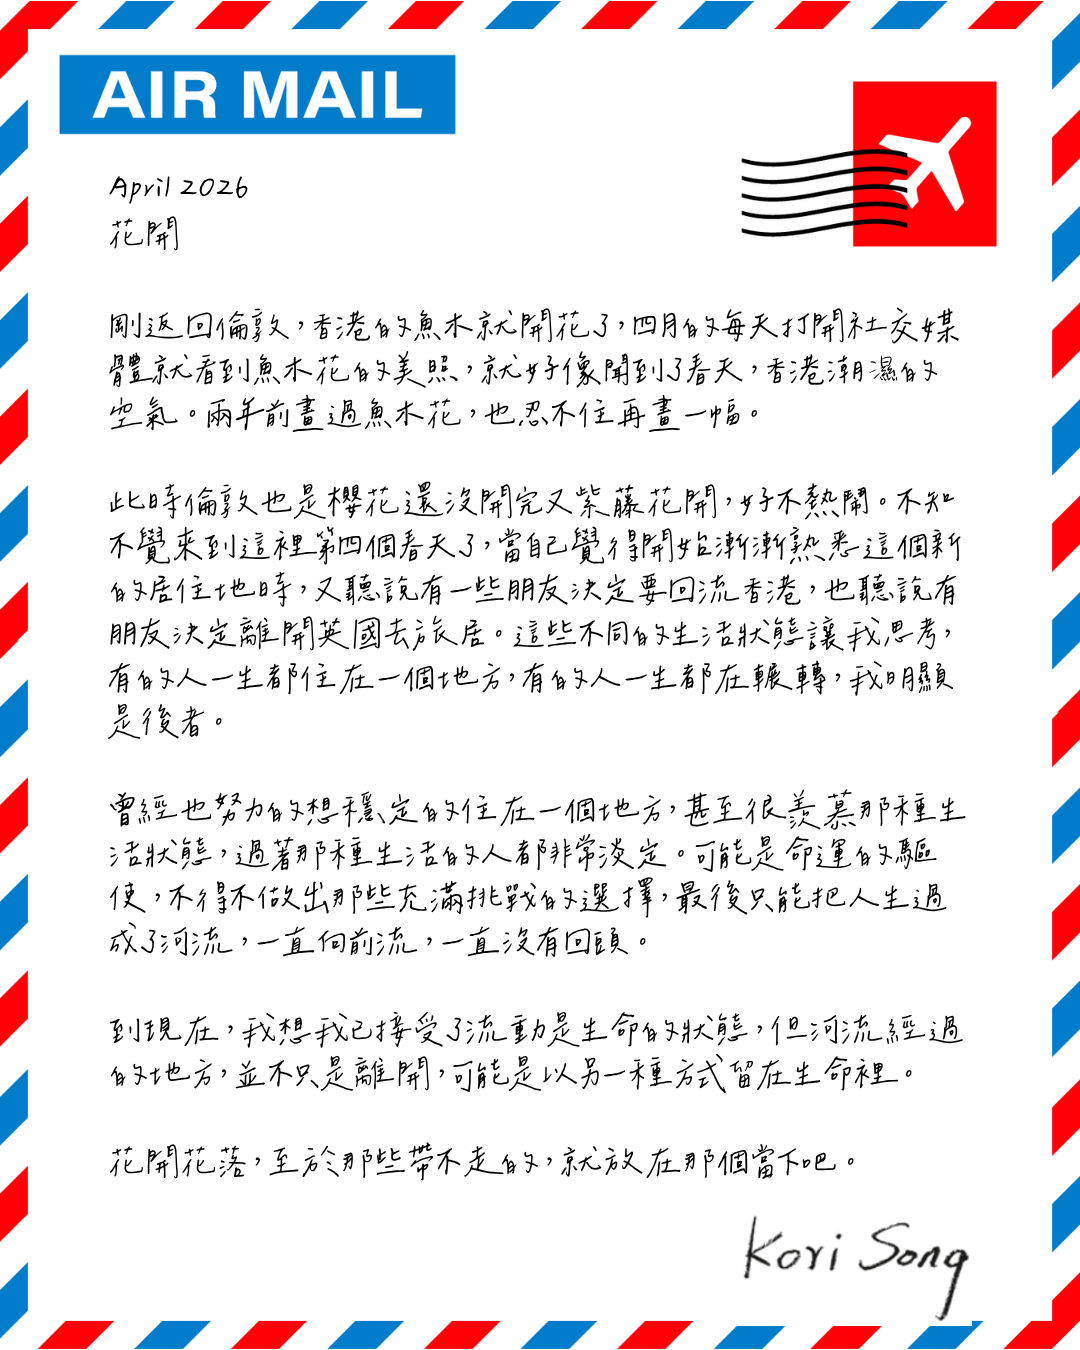 AIR MAIL
April 2026
花開
剛返回倫敦，香港的魚木就開花了，四月的每天打開社交媒
體就看到魚木花的美照，就好像聞到了春天，香港潮濕的
空氣。兩年前畫過魚木花，也忍不住再畫一幅。
此時倫敦也是櫻花還沒開完又紫藤花開，好不熱鬧。不知
不覺來到這裡第四個春天了，當自己覺得開始漸漸熟悉這個新
的居住地時，又聽說有一些朋友決定要回流香港，也聽說有
朋友決定離開英國去旅居。這些不同的生活狀態讓我思考，
有的人一生都住在一個地方，有的人一生都在輾轉，我明顯
是後者。
曾經也努力的想穩定的住在一個地方，甚至很羨慕那種生
活狀態，過著那種生活的人都非常淡定。可能是命運的驅
使，不得不做出那些充滿挑戰的選擇，最後只能把人生過
成了河流，一直向前流，一直沒有回頭。
到現在，我想我已接受了流動是生命的狀態，但河流經過
的地方，並不只是離開，可能是以另一種方式留在生命裡。
花開花落，至於那些帶不走的，就放在那個當下吧。
Kori Song